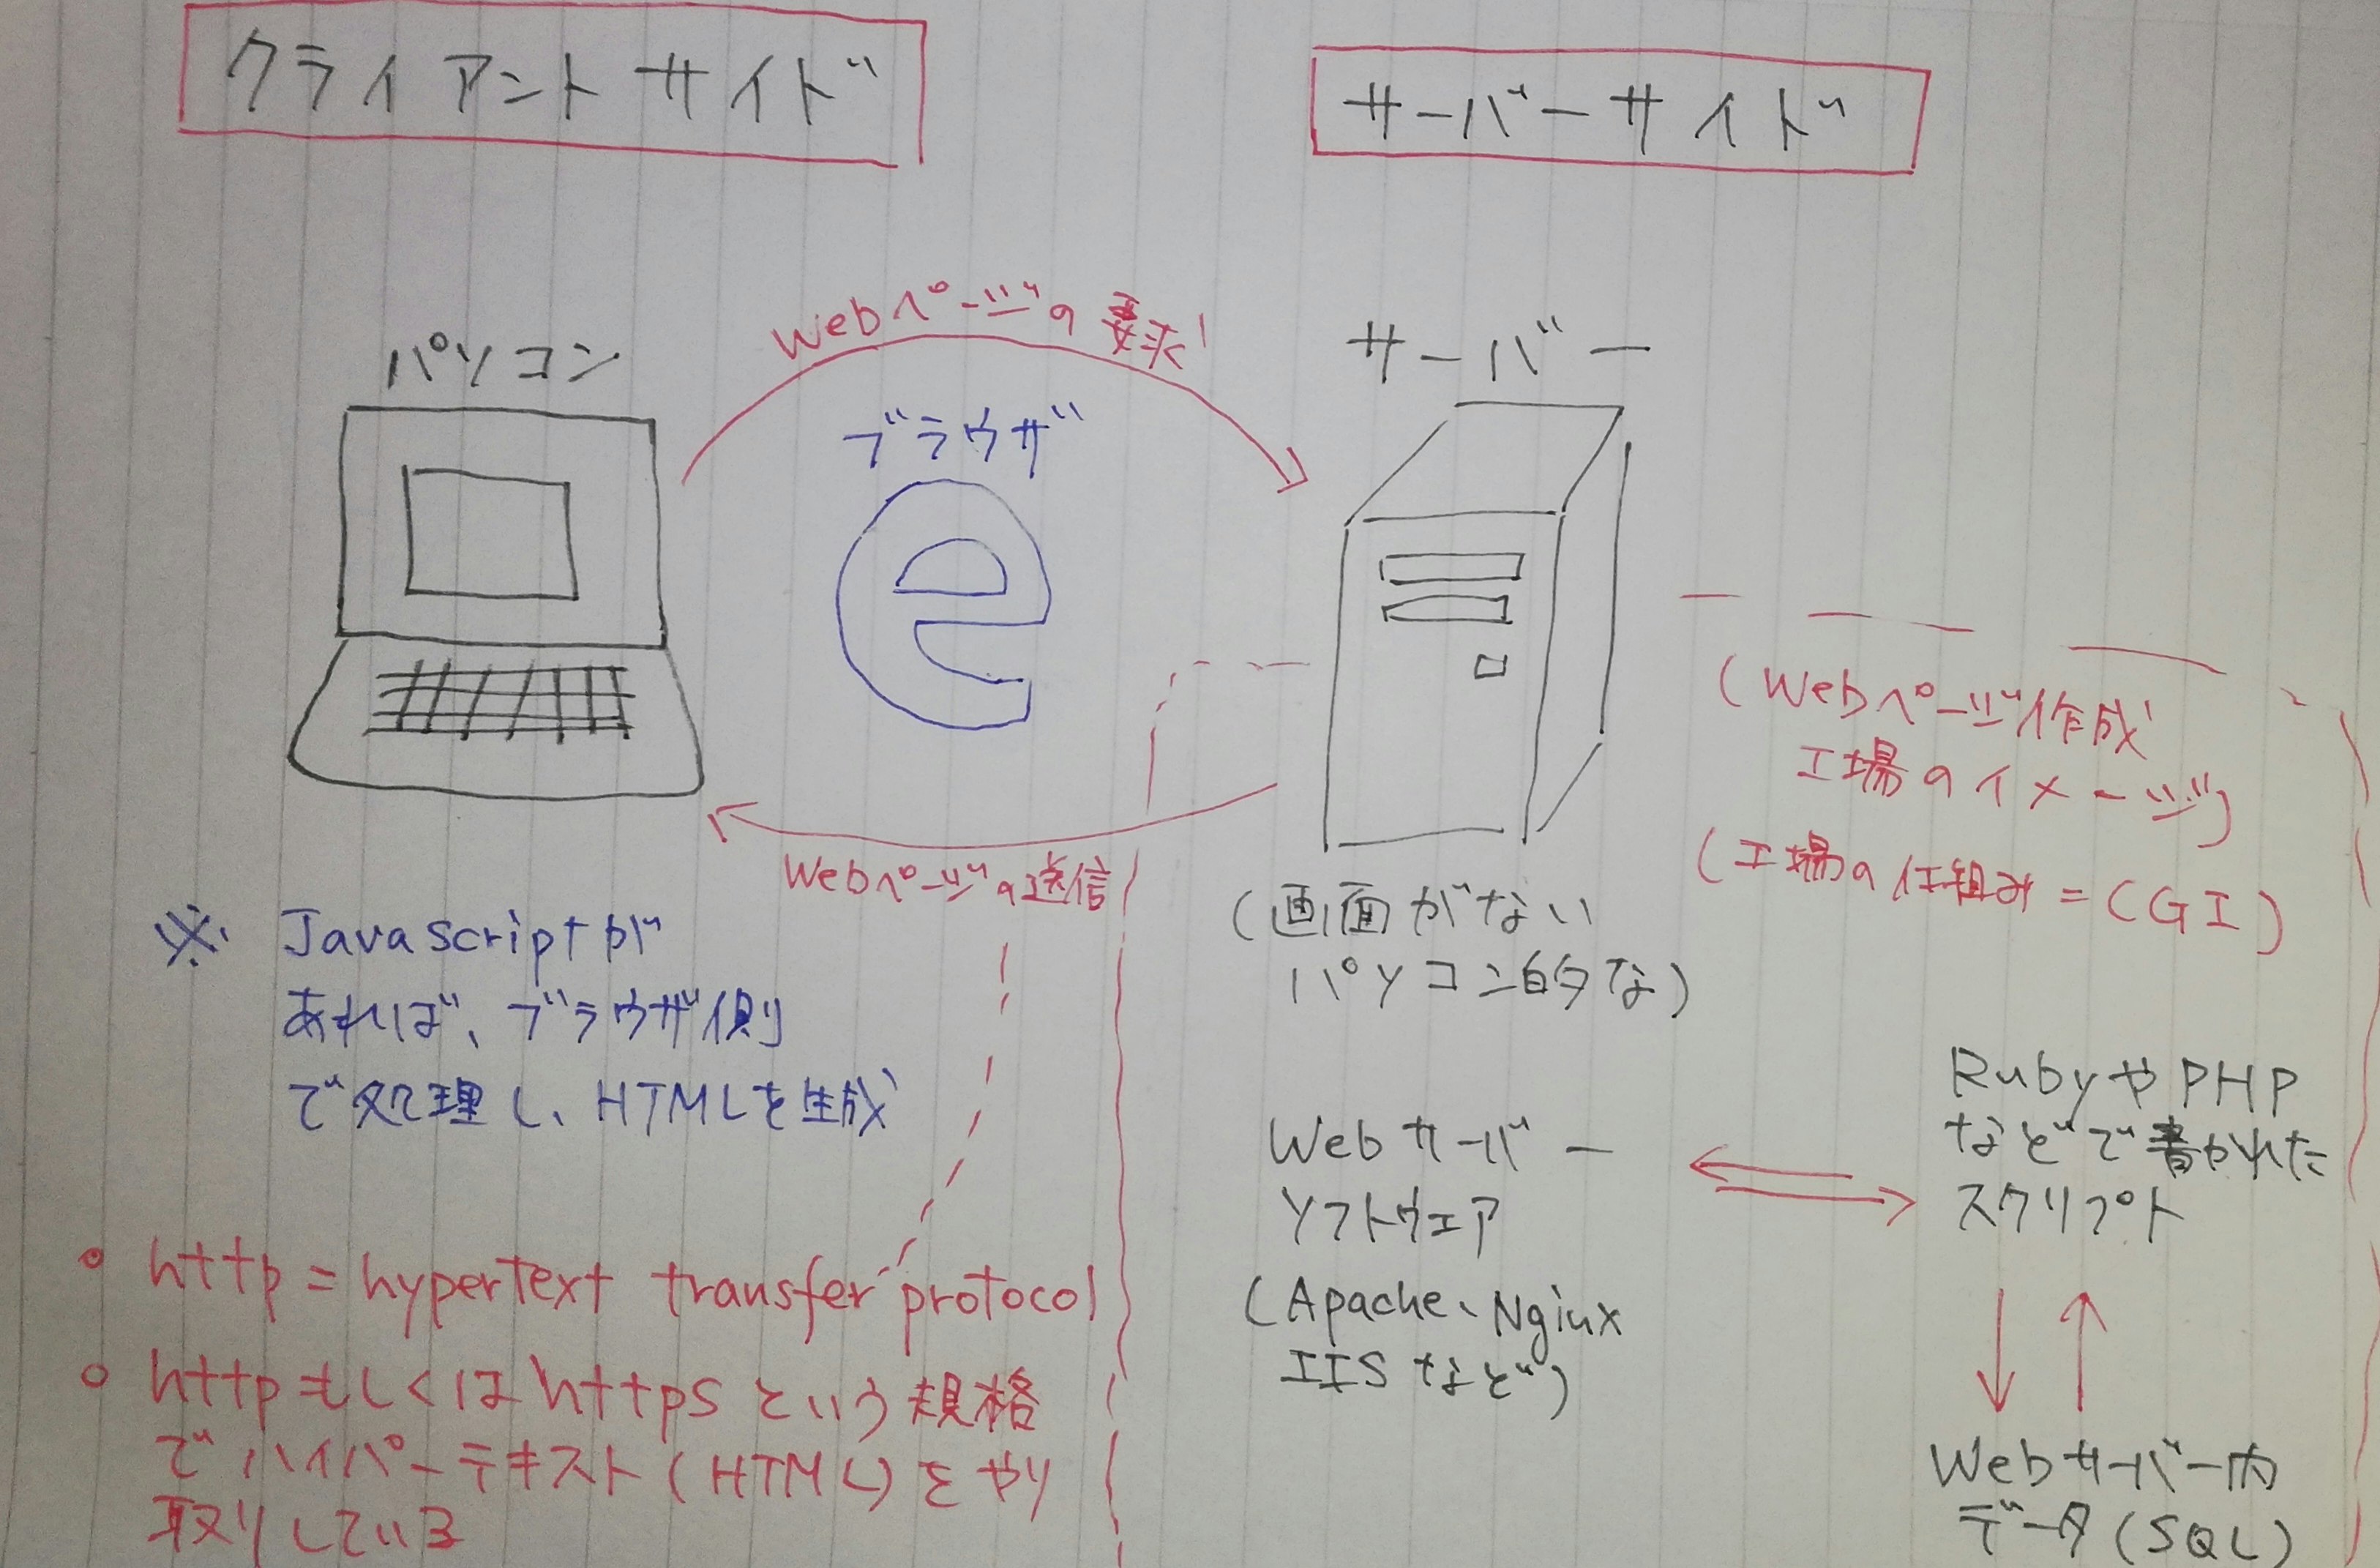 クライアントサイド
サーバーサイド
Webページの要求
パソコン
ブラウザ
サーバー
e
Webページの送信
(Webページ作成
工場のイメージ)
(工場の仕組み=CGI)
(画面がない
パソコン的な)
※ JavaScriptが
あれば、ブラウザ側
で処理し、HTMLを生成
Webサーバー
ソフトウェア
(Apache、Nginx
IISなど)
RubyやPHP
などで書かれた
スクリプト
Webサーバー内
データ(SQL)
○ http = hypertext transfer protocol
○ httpもしくはhttpsという規格
でハイパーテキスト(HTML)をやり
取りしている